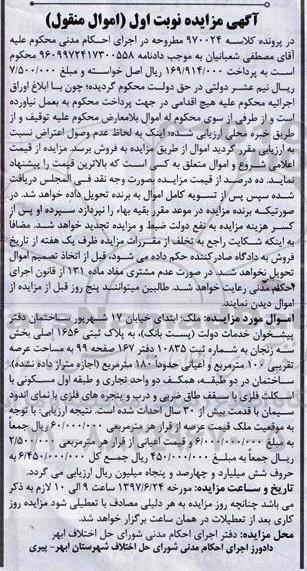 آگهی مزایده نوبت اول (اموال منقول)
در پرونده کلاسه ۹۷۰۰۲۴ مطروحه در اجرای احکام مدنی محکوم علیه
آقای مصطفی شعبانیان به موجب دادنامه ۹۶۰۹۹۷۲۴۱۷۳۰۰۵۵۸ محکوم
است به پرداخت ۱۶۹/۹۱۴/۰۰۰ ریال اصل خواسته و مبلغ ۷/۵۰۰/۰۰۰
ریال نیم عشر دولتی در حق دولت محکوم گردیده؛ چون با ابلاغ اوراق
اجرائیه محکوم علیه هیچ اقدامی در جهت پرداخت محکوم به بعمل نیاورده
است و از طرفی از سوی محکوم له اموال بلامعارض محکوم علیه توقیف و از
طریق خبره محلی ارزیابی شده؛ اینک به لحاظ عدم وصول اعتراض نسبت
به ارزیابی مقرر گردید اموال از طریق مزایده به فروش برسد. مزایده از قیمت
اعلامی شروع و اموال متعلق به کسی است که بالاترین قیمت را پیشنهاد
نماید. ده درصد از قیمت مزایده بصورت وجه نقد فی المجلس دریافت
شده سپس پس از تسویه کامل اموال به برنده تحویل داده خواهد شد. در
صورتیکه برنده مزایده در موعد مقرر بقیه بهاء را نپردازد سپرده او پس از
کسر هزینه مزایده به نفع دولت ضبط و مزایده تجدید خواهد شد. مضافاً
به اینکه شکایت راجع به تخلف از مقررات مزایده ظرف یک هفته از تاریخ
فروش به دادگاه صادرکننده حکم داده می شود، قبل از اتخاذ تصمیم اموال
تحویل نخواهد شد. در صورت عدم مشتری مفاد ماده ۱۳۱ از قانون اجرای
احکام مدنی رعایت خواهد شد. طالبین میتوانند پنج روز قبل از مزایده از
اموال دیدن نمایند.
اموال مورد مزایده: ملک: ابتدای خیابان ۱۷ شهریور، ساختمان دفتر
پیشخوان خدمات دولت (پست بانک)، به پلاک ثبتی ۱۶۵۶ اصلی بخش
سه زنجان به شماره ثبت ۱۰۸۳۵ دفتر ۱۶۷ صفحه ۹۹ به مساحت عرصه
تقریبی ۱۰۰ مترمربع و اعیانی حدوداً ۱۸۰ مترمربع (اجازه متراژ داده نشده).
ساختمان در دو طبقه، همکف دو واحد تجاری و طبقه اول مسکونی با
اسکلت فلزی با سقف طاق ضربی و درب و پنجره های فلزی با نمای اندود
سیمان با قدمت بیش از ۳۰ سال احداث شده است. نتیجه ارزیابی: با توجه
به موقعیت ملک قیمت عرصه از قرار هر مترمربعی ۶۰/۰۰۰/۰۰۰ ریال
جمعاً به مبلغ ۶/۰۰۰/۰۰۰/۰۰۰ و قیمت اعیانی از قرار هر مترمربعی ۲/۵۰۰/۰۰۰
ریال جمعاً به مبلغ ۴۵۰/۰۰۰/۰۰۰ ریال جمع کل ۶/۴۵۰/۰۰۰/۰۰۰ به
حروف شش میلیارد و چهارصد و پنجاه میلیون ریال ارزیابی می گردد.
تاریخ و ساعت مزایده: مورخه ۱۳۹۷/۶/۲۴ ساعت ۹ الی ۱۰ لازم به ذکر
می باشد چنانچه روز مزایده به هر دلیلی مصادف با تعطیلی شود مزایده روز
کاری بعد از تعطیلات در همان ساعت برگزار خواهد شد.
محل مزایده: دفتر اجرای احکام مدنی شورای حل اختلاف ابهر
دادورز اجرای احکام مدنی شورای حل اختلاف شهرستان ابهر- پیری